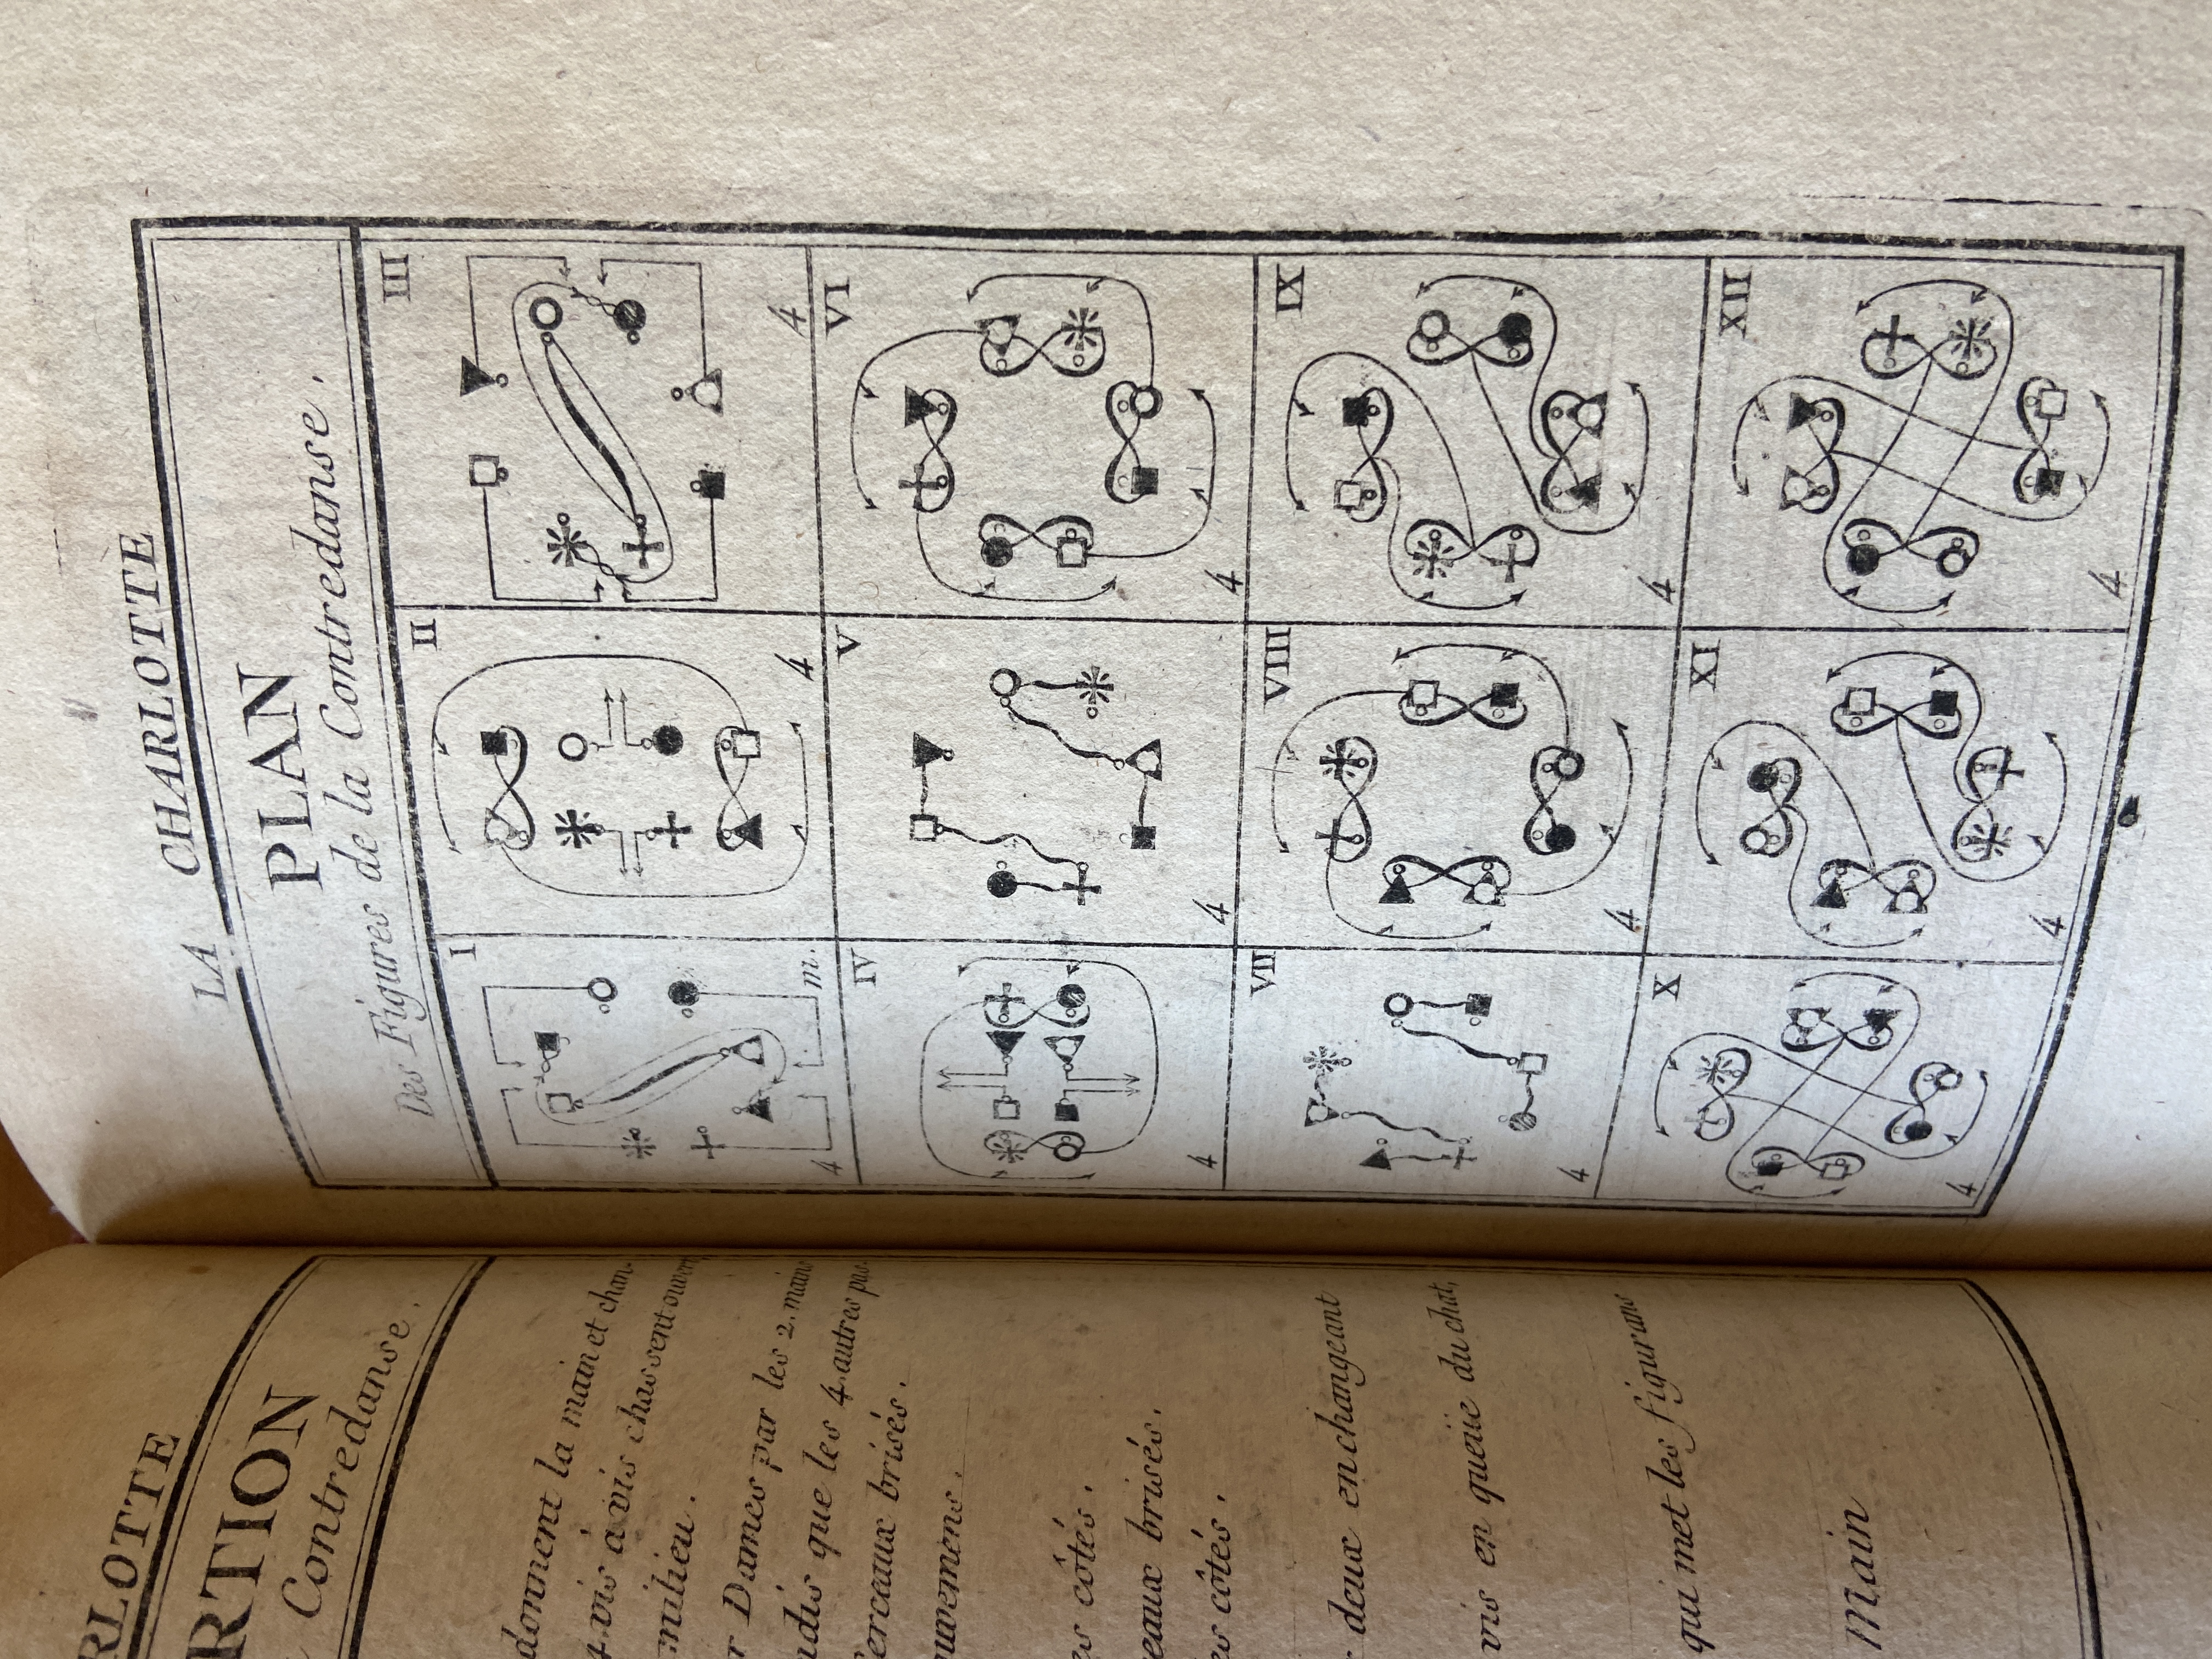 RLOTTE
RTION
Contredanse.
donnent la main et chan-
4 vis à vis chassent ouvert
milieu.
r Dames par les 2. mains
ndis que les 4 autres pas.
Cerceaux brisés.
ouvemens.
es côtés.
eaux brisés.
es côtés.
deux en changeant
vis en queüe du chat,
qui met les figurans
Main
LA CHARLOTTE
PLAN
Des Figures de la Contredanse.
I
4 m.
II
4
III
4
IV
4
V
4
VI
4
VII
4
VIII
4
IX
4
X
4
XI
4
XII
4